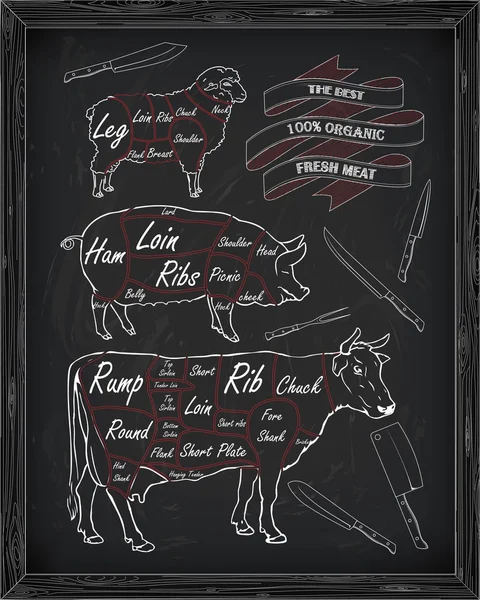 THE BEST
100% ORGANIC
FRESH MEAT
Leg
Loin
Ribs
Chuck
Neck
Shoulder
Flank
Breast
Lard
Ham
Loin
Ribs
Shoulder
Head
Picnic
cheek
Belly
Hock
Hock
Rump
Top
Sirloin
Tender Loin
Top
Sirloin
Bottom
Sirloin
Short
Loin
Rib
Chuck
Round
Short ribs
Fore
Shank
Brisket
Flank
Short Plate
Hind
Shank
Hanging Tender